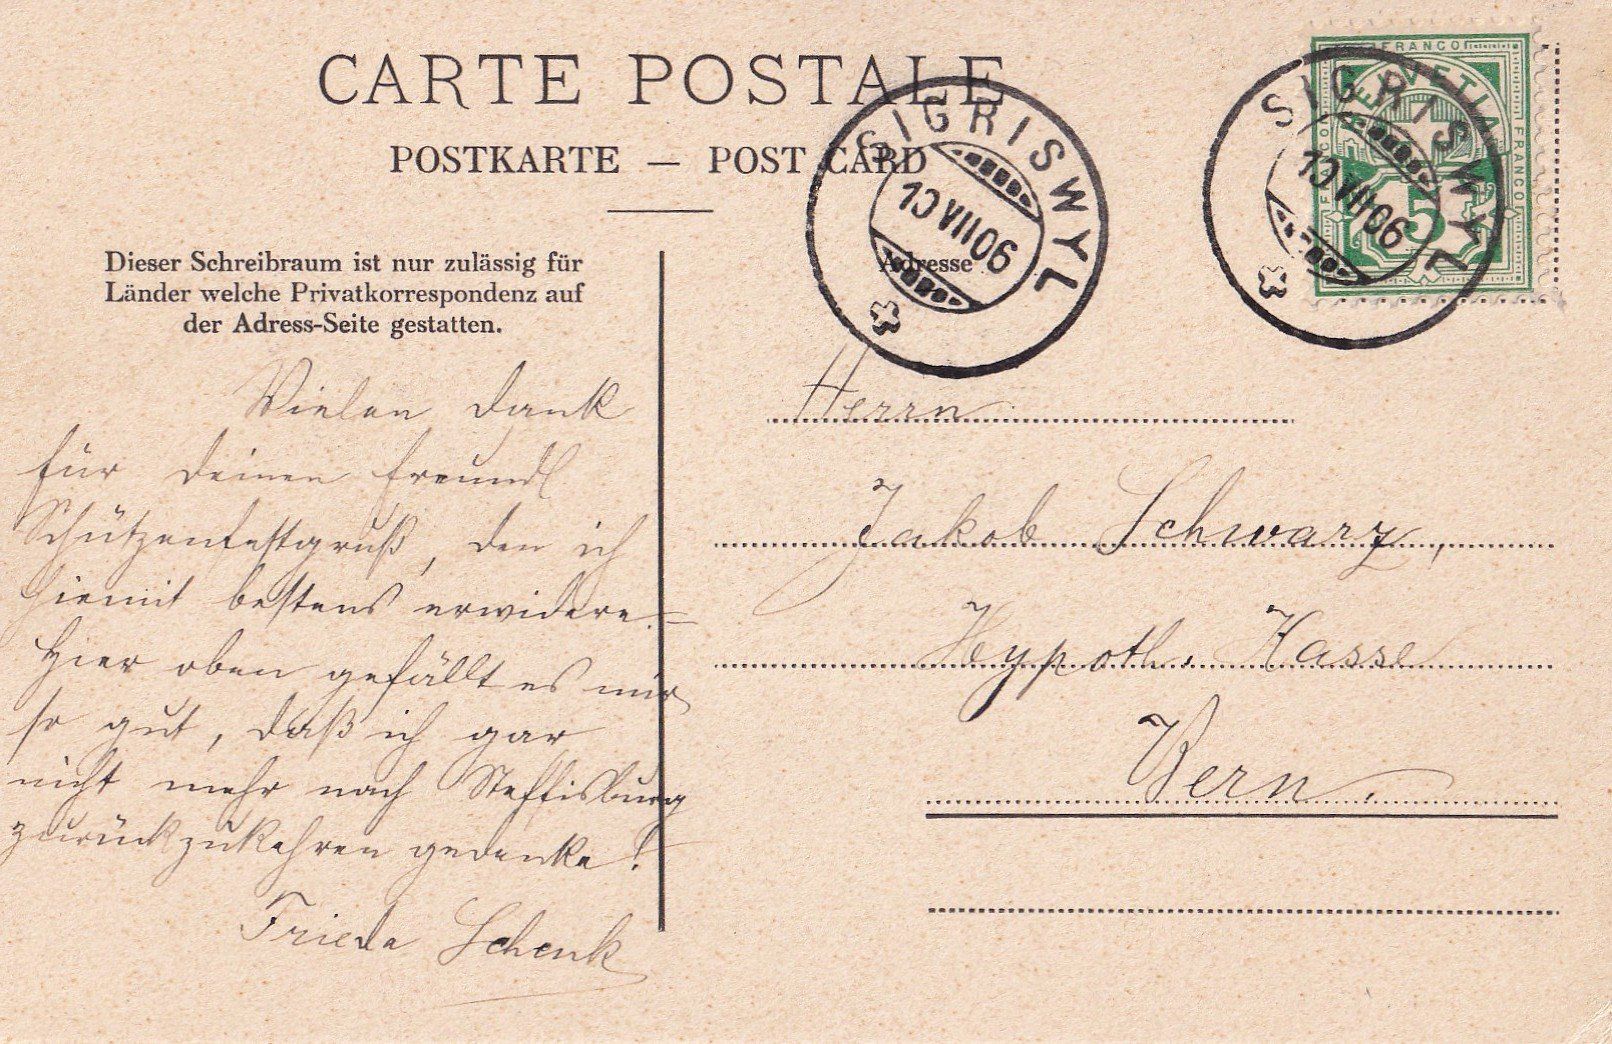 CARTE POSTALE
POSTKARTE — POST CARD
Dieser Schreibraum ist nur zulässig für
Länder welche Privatkorrespondenz auf
der Adress-Seite gestatten.
Adresse
SIGRISWYL
10 VII 06
SIGRISWYL
10 VII 06
FRANCO
FRANCO
FRANCO
HELVETIA
5
Vielen Dank
für deinen freundl.
Schützenfestgruß, den ich
hiemit bestens erwidere. –
Hier oben gefällt es mir
so gut, daß ich gar
nicht mehr nach Steffisburg
zurückzukehren gedenke!
Frieda Schenk
Herrn
Jakob Schwarz,
Hypoth. Kasse
Bern.